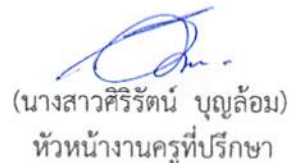 (นางสาวศิริรัตน์ บุญล้อม)
หัวหน้างานครูที่ปรึกษา